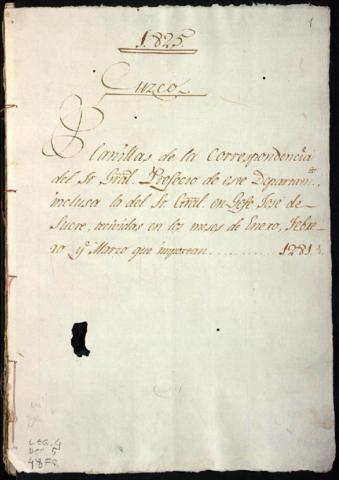 1
1825.
Cuzco
Planillas de la Correspondencia
del Sr. Gral. Prefecto de este Departamto.,
inclusa la del Sr. Gral. en Gefe José de
Sucre, recividas en los meses de Enero, Febre-
ro y Marzo que importan . . . . . . . . . . 1281
LEG. 4
DOC. 5
48 Fs.